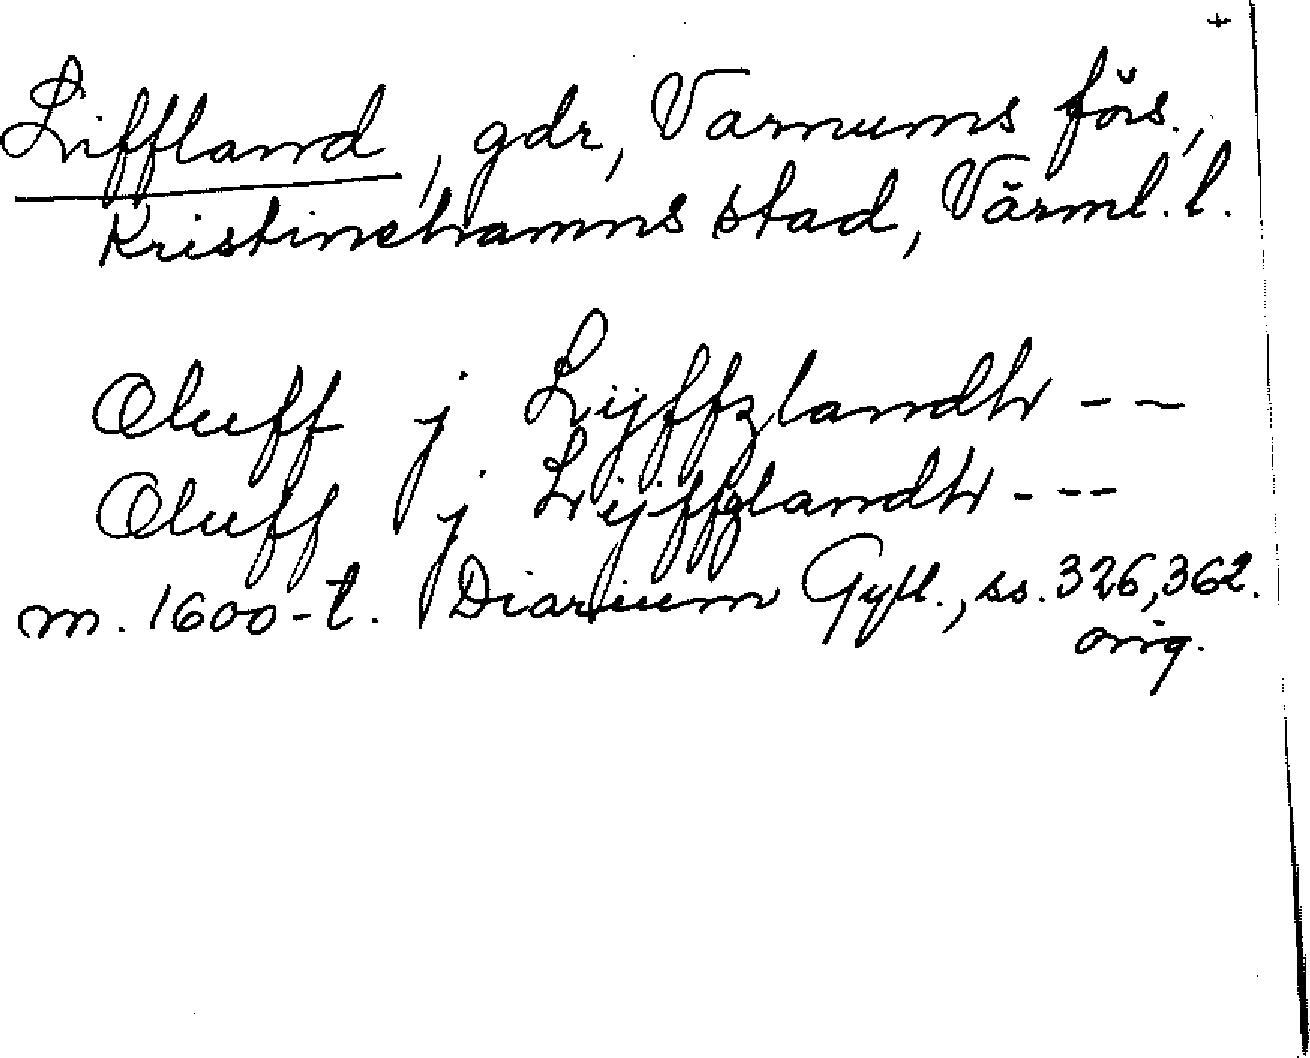 +
Liffland, gdr, Varnums förs.,
Kristinehamns stad, Värml. l.
Oluff j Lijffzlandh - -
Oluff j Lijffzlandh - - -
m. 1600-t. Diarium Gyll., ss. 326, 362.
orig.